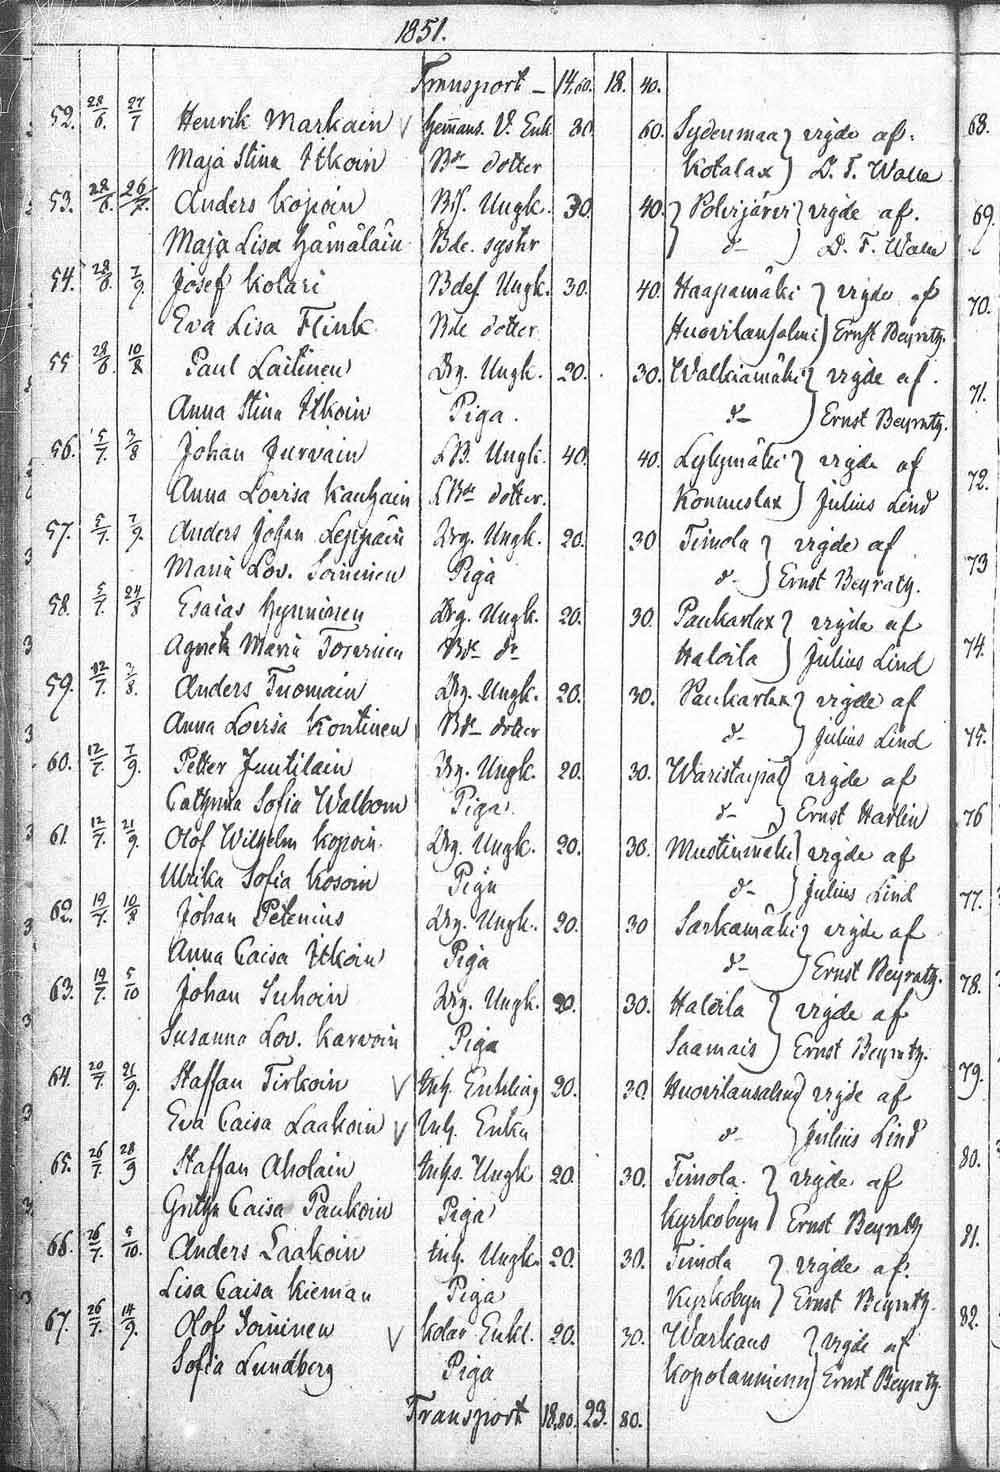 1851.
Transport — 14.60. 18. 40.
52. 28/6. 27/7 Henrik Markain Hemans. V. Enk. 30. 60. Sydenmaa vigde af
Maja Stina Itkoin Bde dotter Kotalax D. T. Walle
53. 28/6. 26/7. Anders Kopoin Bs. Ungk. 30. 40. Polvijärvi vigde af.
Maja Lisa Hämäläin Bde. systr d— D. T. Walle
54. 28/6. 7/9. Josef Kolari Bdes. Ungk. 30. 40. Haapamäki vigde af
Eva Lisa Flink Bde dotter Huovilansalmi Ernst Beyratz.
55 28/6. 10/8 Paul Laitinen Drg. Ungk. 20. 30. Walkiamäki vigde af.
Anna Stina Itkoin Piga. d— Ernst Beyratz.
56. 5/7. 3/8 Johan Jurvain LB. Ungk. 40. 40. Lylymäki vigde af
Anna Lovisa Kauhain LBde dotter. Konnuslax Julius Lind
57. 5/7. 7/9. Anders Johan Leppäin Drg. Ungk. 20. 30 Timola vigde af
Maria Lov. Soininen Piga d— Ernst Beyratz.
58. 5/7. 24/8 Esaias Hynninen Drg. Ungk. 20. 30. Paukarlax vigde af
Agneta Maria Toivinen Bde dr Haloila Julius Lind
59. 12/7. 3/8. Anders Tuomain Drg. Ungk. 20. 30. Paukarlax vigde af
Anna Lovisa Kontinen Bde dotter d— Julius Lind
60. 12/7. 7/9. Petter Juutilain Drg. Ungk. 20. 30. Waristaipal vigde af
Cathrina Sofia Walbom Piga. d— Ernst Harlin
61. 12/7. 21/9. Olof Wilhelm Kopoin Drg. Ungk. 20. 30. Mustinmäki vigde af
Ulrika Sofia Kosoin Piga d— Julius Lind
62. 19/7. 10/8 Johan Petenius Drg. Ungk. 20. 30 Sarkamäki vigde af
Anna Caisa Itkoin Piga d— Ernst Beyratz.
63. 19/7. 5/10 Johan Suhoin Drg. Ungk. 20. 30. Haloila vigde af
Susanna Lov. Karvoin Piga Saamais Ernst Beyratz.
64. 20/7. 21/9. Staffan Tirkoin Inh. Enkling 20. 30. Huovilansalmi vigde af
Eva Caisa Laakoin Inh. Enka d— Julius Lind
65. 26/7. 28/9 Staffan Aholain Inhs. Ungk 20. 30. Timola. vigde af
Gretha Caisa Paukoin Piga Kyrkobyn Ernst Beyratz
66. 26/7. 5/10. Anders Laakoin Inh. Ungk. 20. 30. Timola vigde af.
Lisa Caisa Kieman Piga Kyrkobyn Ernst Beyratz.
67. 26/7. 14/9. Olof Soininen Kolar Enkl. 20. 30. Warkaus vigde af
Sofia Lundberg Piga Kopolanniemi Ernst Beyratz.
Transport 18.80. 23. 80.
68.
69.
70.
71.
72.
73
74.
75.
76
77.
78.
79.
80.
81.
82.